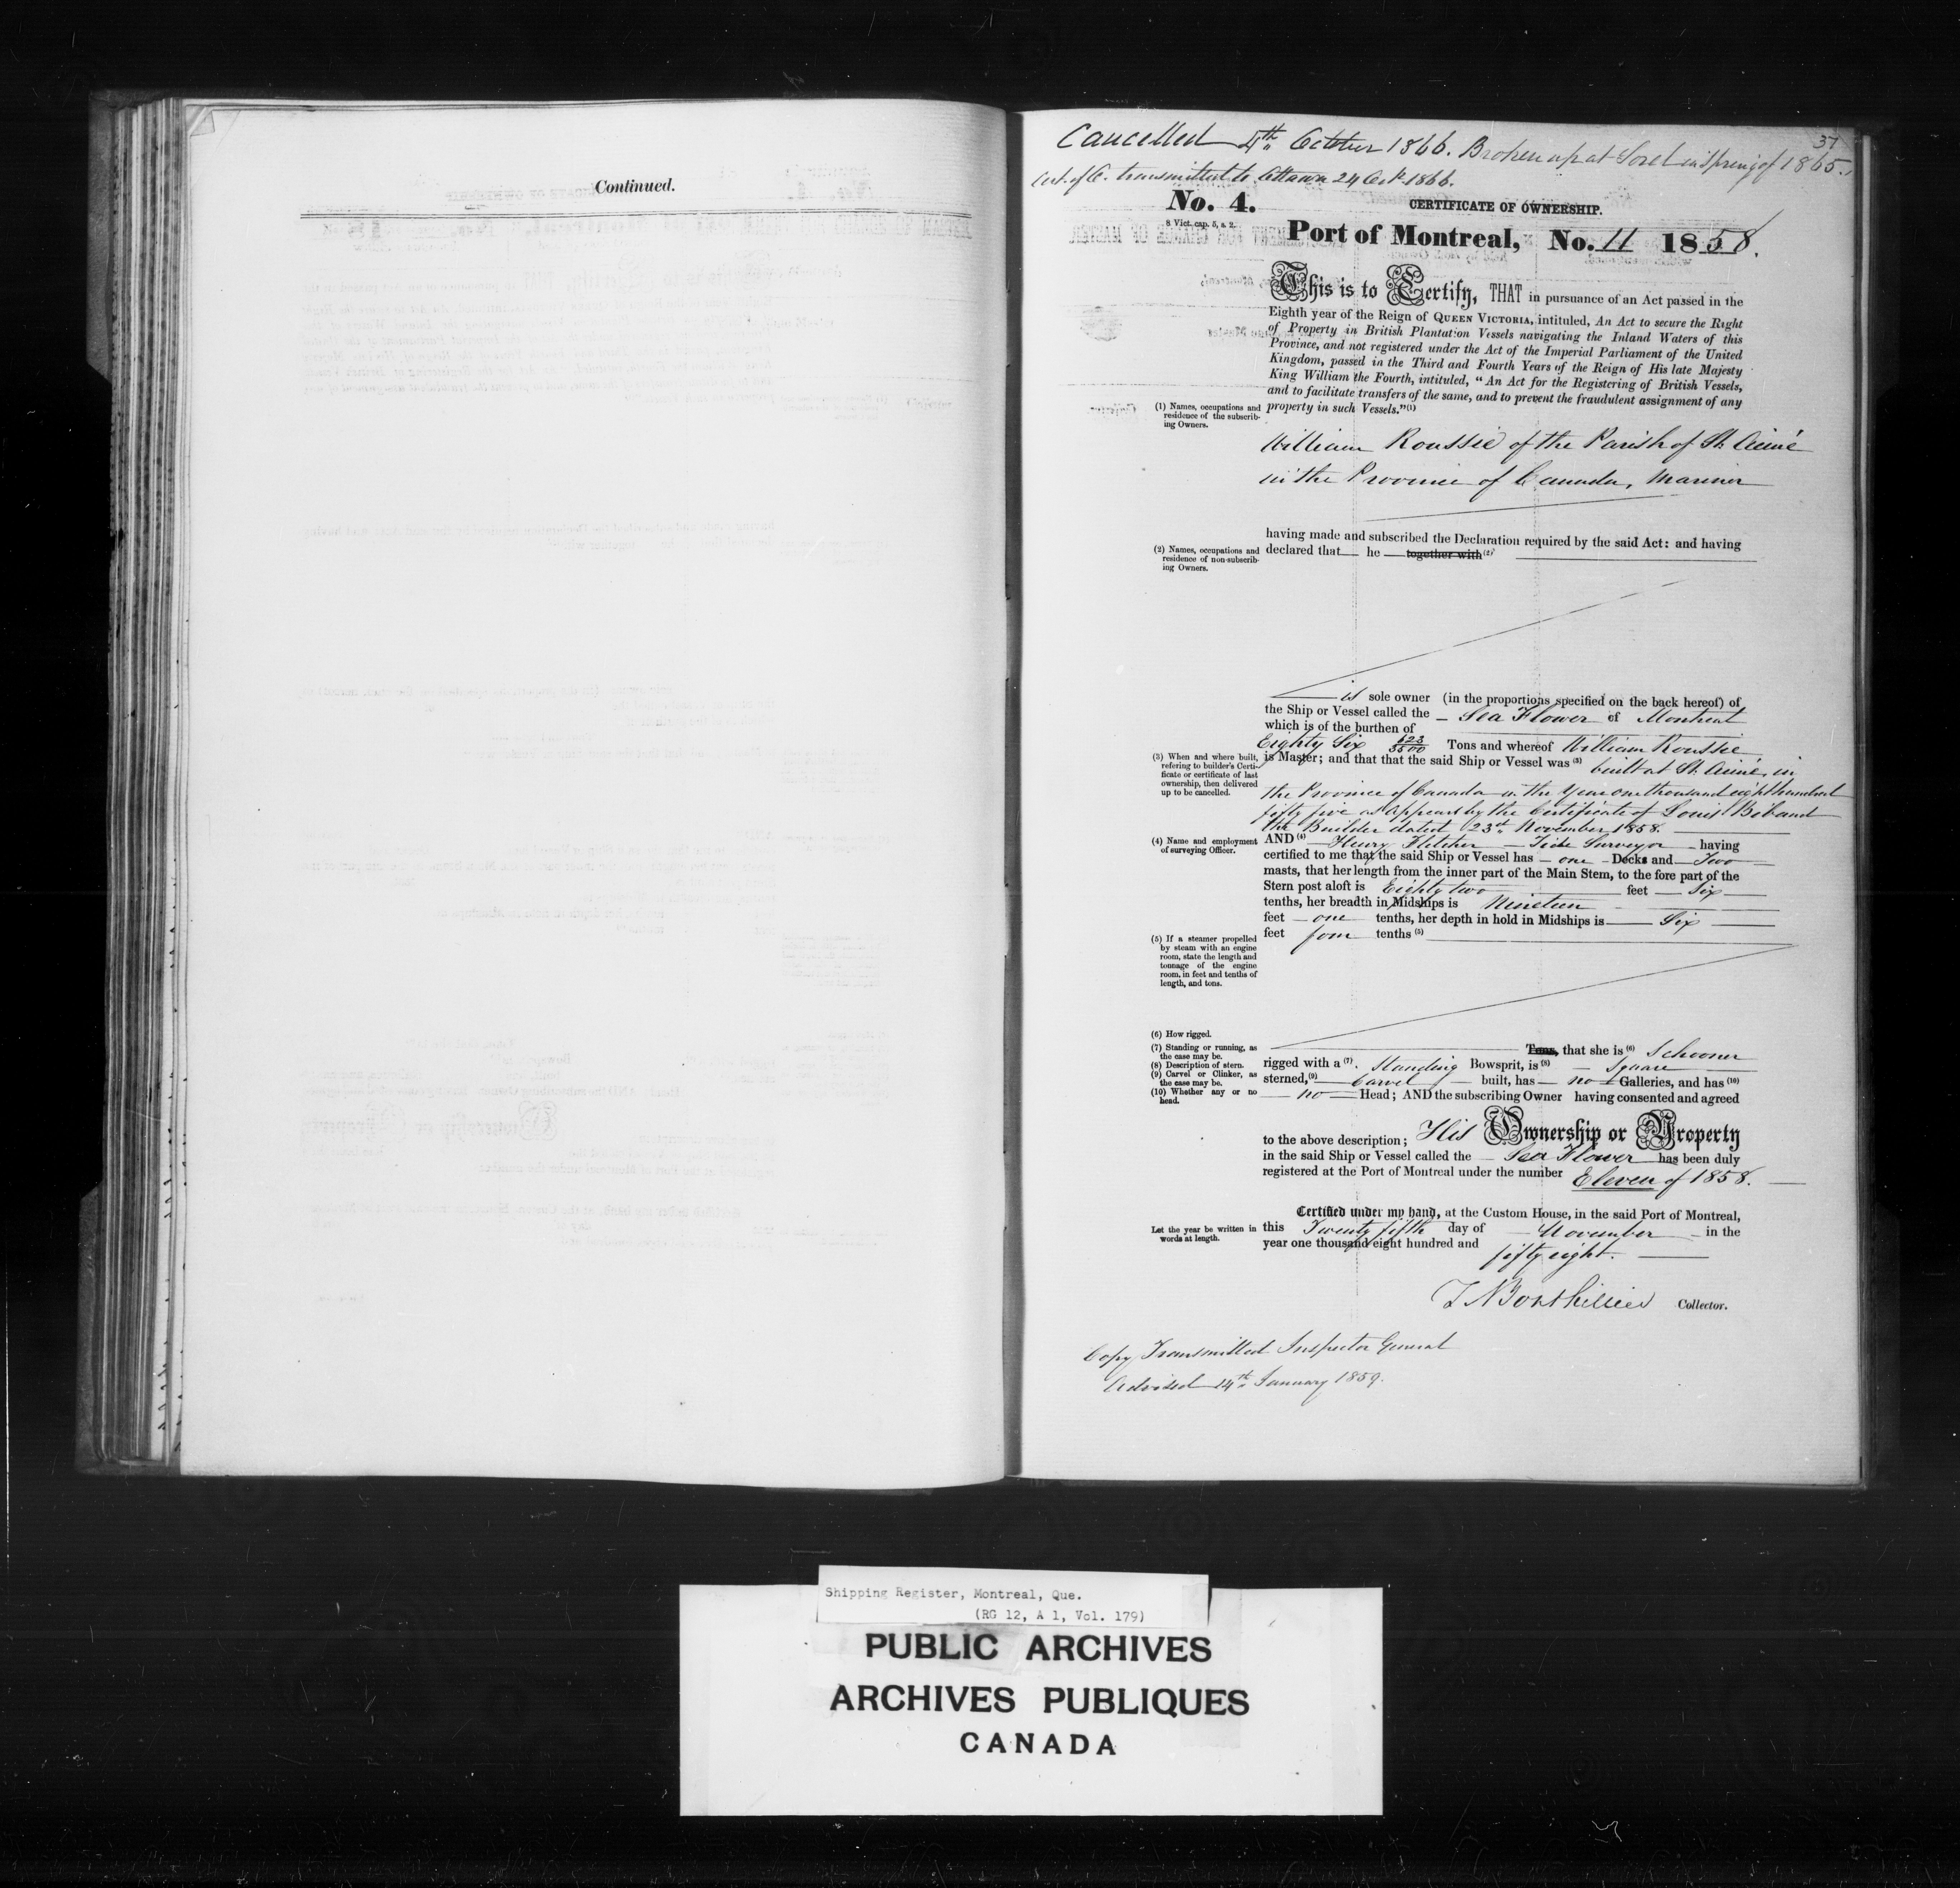 Continued.
37
Cancelled 4th October 1866. Broken up at Sorel in Spring of 1865.
Cert. of O. transmitted to Ottawa 24 Oct 1866.
No. 4.
CERTIFICATE OF OWNERSHIP.
8 Vict. cap. 5, s. 2.
Port of Montreal, No. 11 1858.
This is to Certify, THAT in pursuance of an Act passed in the
Eighth year of the Reign of QUEEN VICTORIA, intituled, An Act to secure the Right
of Property in British Plantation Vessels navigating the Inland Waters of this
Province, and not registered under the Act of the Imperial Parliament of the United
Kingdom, passed in the Third and Fourth Years of the Reign of His late Majesty
King William the Fourth, intituled, "An Act for the Registering of British Vessels,
and to facilitate transfers of the same, and to prevent the fraudulent assignment of any
property in such Vessels."(1)
(1) Names, occupations and
residence of the subscrib-
ing Owners.
William Roussie of the Parish of St. Aimé
in the Province of Canada, Mariner
having made and subscribed the Declaration required by the said Act: and having
declared that he together with (2)
(2) Names, occupations and
residence of non-subscrib-
ing Owners.
is sole owner (in the proportions specified on the back hereof) of
the Ship or Vessel called the Sea Flower of Montreal
which is of the burthen of
Eighty Six 623/3500 Tons and whereof William Roussie
is Master; and that that the said Ship or Vessel was (3) built at St. Aimé, in
the Province of Canada in the Year one thousand eight hundred
fifty five as appears by the Certificate of Louis Biband
the Builder dated 23rd November 1858.
(3) When and where built,
refering to builder's Certi-
ficate or certificate of last
ownership, then delivered
up to be cancelled.
AND (4) Henry Fletcher Tide Surveyor having
(4) Name and employment
of surveying Officer.
certified to me that the said Ship or Vessel has one Decks and Two
masts, that her length from the inner part of the Main Stem, to the fore part of the
Stern post aloft is Eighty two feet Six
tenths, her breadth in Midships is Nineteen
feet one tenths, her depth in hold in Midships is Six
feet four tenths (5)
(5) If a steamer propelled
by steam with an engine
room, state the length and
tonnage of the engine
room, in feet and tenths of
length, and tons.
(6) How rigged.
(7) Standing or running, as
the case may be.
(8) Description of stern.
(9) Carvel or Clinker, as
the case may be.
(10) Whether any or no
head.
Tons, that she is (6) Schooner
rigged with a (7) Standing Bowsprit, is (8) Square
sterned, (9) Carvel built, has no Galleries, and has (10)
no Head; AND the subscribing Owner having consented and agreed
to the above description; His Ownership or Property
in the said Ship or Vessel called the Sea Flower has been duly
registered at the Port of Montreal under the number Eleven of 1858.
Certified under my hand, at the Custom House, in the said Port of Montreal,
Let the year be written in
words at length.
this Twenty fifth day of November in the
year one thousand eight hundred and fifty eight.
Collector.
Copy Transmitted Inspector General
Advised 14th January 1859.
Shipping Register, Montreal, Que.
(RG 12, A 1, Vol. 179)
PUBLIC ARCHIVES
ARCHIVES PUBLIQUES
CANADA